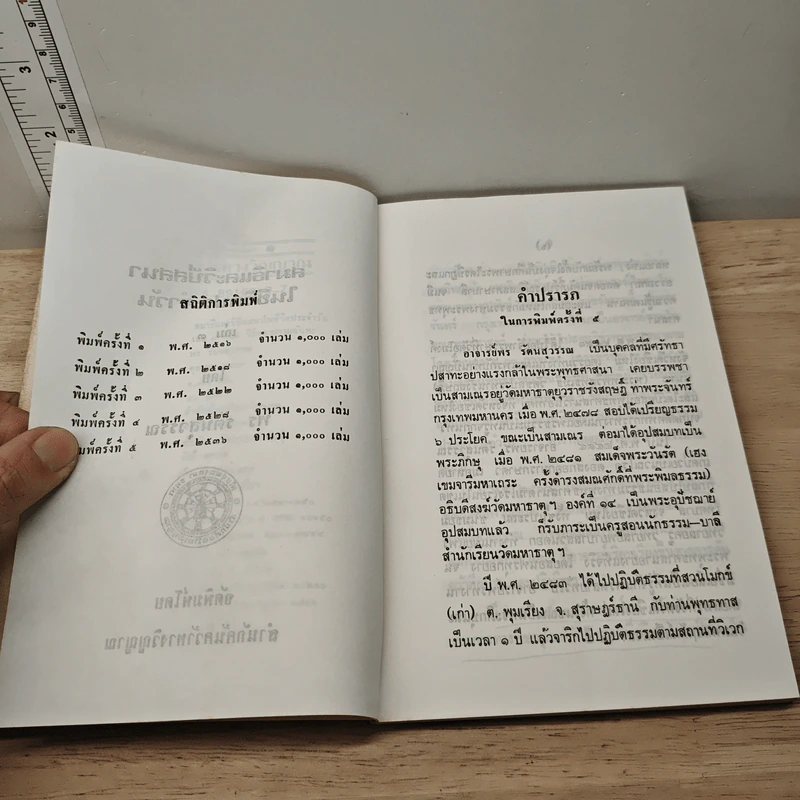 สถิติการพิมพ์
พิมพ์ครั้งที่ ๑ พ.ศ. ๒๕๑๖ จำนวน ๑,๐๐๐ เล่ม
พิมพ์ครั้งที่ ๒ พ.ศ. ๒๕๑๘ จำนวน ๑,๐๐๐ เล่ม
พิมพ์ครั้งที่ ๓ พ.ศ. ๒๕๒๒ จำนวน ๑,๐๐๐ เล่ม
พิมพ์ครั้งที่ ๔ พ.ศ. ๒๕๒๘ จำนวน ๑,๐๐๐ เล่ม
พิมพ์ครั้งที่ ๕ พ.ศ. ๒๕๓๖ จำนวน ๑,๐๐๐ เล่ม
คำปรารภ
ในการพิมพ์ครั้งที่ ๕
อาจารย์พร รัตนสุวรรณ เป็นบุคคลที่มีศรัทธา
ปสาทะอย่างแรงกล้าในพระพุทธศาสนา เคยบรรพชา
เป็นสามเณรอยู่วัดมหาธาตุยุวราชรังสฤษฎิ์ ท่าพระจันทร์
กรุงเทพมหานคร เมื่อ พ.ศ. ๒๔๗๘ สอบได้เปรียญธรรม
๖ ประโยค ขณะเป็นสามเณร ต่อมาได้อุปสมบทเป็น
พระภิกษุ เมื่อ พ.ศ. ๒๔๘๑ สมเด็จพระวันรัต (เฮง
เขมจารีมหาเถระ ครั้งดำรงสมณศักดิ์ที่พระพิมลธรรม)
อธิบดีสงฆ์วัดมหาธาตุฯ องค์ที่ ๑๔ เป็นพระอุปัชฌาย์
อุปสมบทแล้ว ก็รับภาระเป็นครูสอนนักธรรม–บาลี
สำนักเรียนวัดมหาธาตุฯ
ปี พ.ศ. ๒๔๘๓ ได้ไปปฏิบัติธรรมที่สวนโมกข์
(เก่า) ต. พุมเรียง จ. สุราษฎร์ธานี กับท่านพุทธทาส
เป็นเวลา ๑ ปี แล้วจาริกไปปฏิบัติธรรมตามสถานที่วิเวก